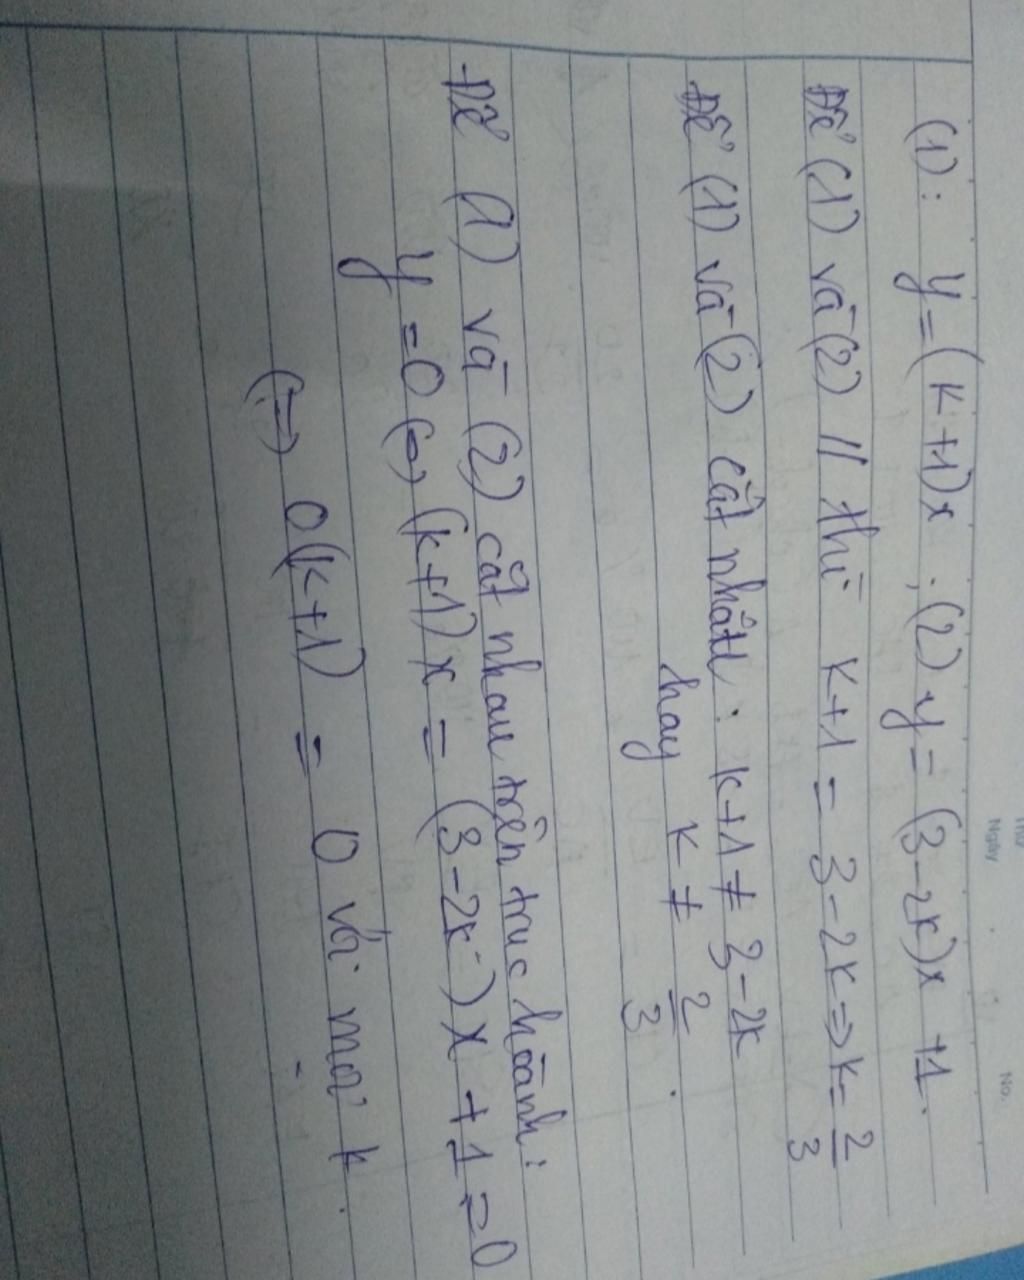 Thứ
Ngày
No.
(1): y = (k+1)x ; (2) y = (3-2k)x +1.
Để (1) và (2) // thì k+1 = 3-2k => k = 2/3
Để (1) và (2) cắt nhau: k+1 ≠ 3-2k
hay k ≠ 2/3.
Để (1) và (2) cắt nhau trên trục hoành:
y = 0 <=> (k+1)x = (3-2k)x + 1 = 0
<=> 0(k+1) = 0 với mọi k.